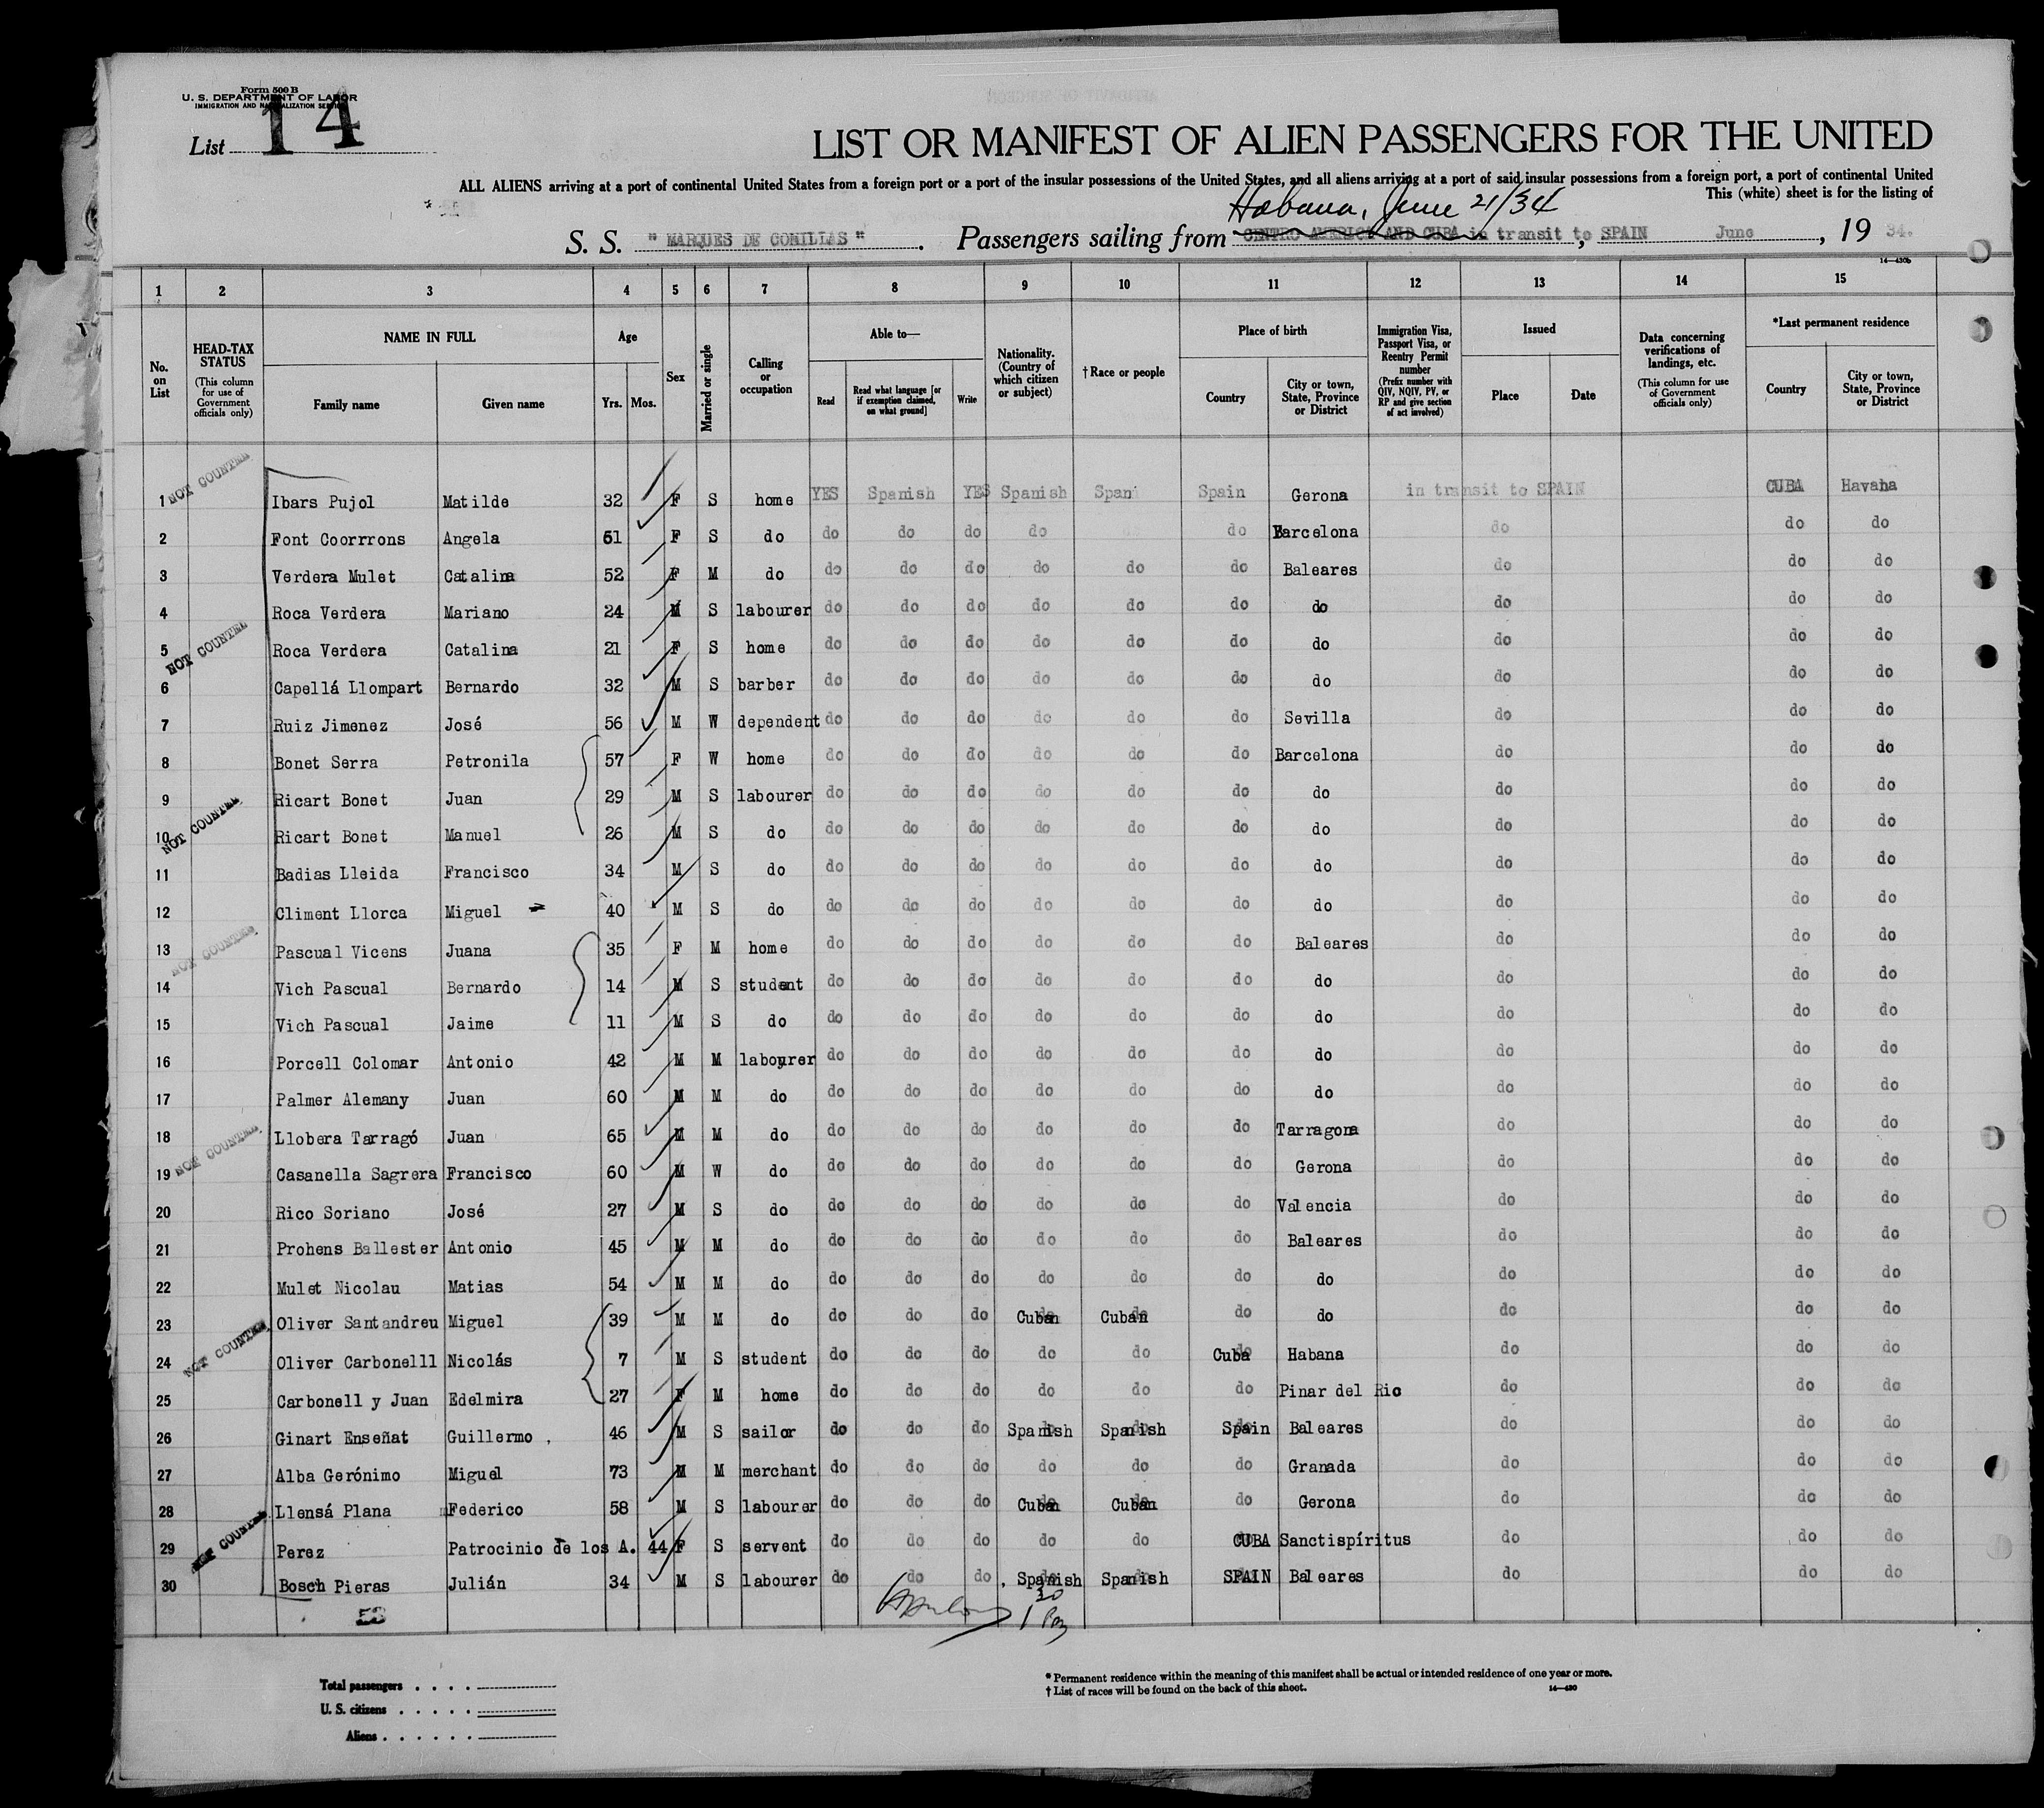 Form 500 B
U. S. DEPARTMENT OF LABOR
IMMIGRATION AND NATURALIZATION SERVICE
List 14
LIST OR MANIFEST OF ALIEN PASSENGERS FOR THE UNITED
ALL ALIENS arriving at a port of continental United States from a foreign port or a port of the insular possessions of the United States, and all aliens arriving at a port of said insular possessions from a foreign port, a port of continental United
This (white) sheet is for the listing of
Habana, June 21/34
S. S. " MARQUES DE COMILLAS " . Passengers sailing from CENTRO AMERICA AND CUBA in transit to SPAIN , June , 19 34.
14—430b
1 2 3 4 5 6 7 8 9 10 11 12 13 14 15
No. on List HEAD-TAX STATUS (This column for use of Government officials only) NAME IN FULL Family name Given name Age Yrs. Mos. Sex Married or single Calling or occupation Able to— Read Read what language [or if exemption claimed, on what ground] Write Nationality. (Country of which citizen or subject) †Race or people Place of birth Country City or town, State, Province or District Immigration Visa, Passport Visa, or Reentry Permit number (Prefix number with QIV, NQIV, PV, or RP and give section of act involved) Issued Place Date Data concerning verifications of landings, etc. (This column for use of Government officials only) *Last permanent residence Country City or town, State, Province or District
NOT COUNTED
1 Ibars Pujol Matilde 32 F S home YES Spanish YES Spanish Span Spain Gerona in transit to SPAIN CUBA Havana
2 Font Coorrrons Angela 51 F S do do do do do do Barcelona do do do
3 Verdera Mulet Catalina 52 F M do do do do do do do Baleares do do do
4 Roca Verdera Mariano 24 M S labourer do do do do do do do do do do
NOT COUNTED
5 Roca Verdera Catalina 21 F S home do do do do do do do do do do
6 Capellá Llompart Bernardo 32 M S barber do do do do do do do do do do
7 Ruiz Jimenez José 56 M W dependent do do do do do do Sevilla do do do
8 Bonet Serra Petronila 57 F W home do do do do do do Barcelona do do do
9 Ricart Bonet Juan 29 M S labourer do do do do do do do do do do
NOT COUNTED
10 Ricart Bonet Manuel 26 M S do do do do do do do do do do do
11 Badias Lleida Francisco 34 M S do do do do do do do do do do do
12 Climent Llorca Miguel 40 M S do do do do do do do do do do do
NOT COUNTED
13 Pascual Vicens Juana 35 F M home do do do do do do Baleares do do do
14 Vich Pascual Bernardo 14 M S student do do do do do do do do do do
15 Vich Pascual Jaime 11 M S do do do do do do do do do do do
16 Porcell Colomar Antonio 42 M M labourer do do do do do do do do do do
17 Palmer Alemany Juan 60 M M do do do do do do do do do do do
18 Llobera Tarragó Juan 65 M M do do do do do do do Tarragona do do do
NOT COUNTED
19 Casanella Sagrera Francisco 60 M W do do do do do do do Gerona do do do
20 Rico Soriano José 27 M S do do do do do do do Valencia do do do
21 Prohens Ballester Antonio 45 M M do do do do do do do Baleares do do do
22 Mulet Nicolau Matias 54 M M do do do do do do do do do do do
23 Oliver Santandreu Miguel 39 M M do do do do Cuban Cuban do do do do do
NOT COUNTED
24 Oliver Carbonelll Nicolás 7 M S student do do do do do Cuba Habana do do do
25 Carbonell y Juan Edelmira 27 F M home do do do do do do Pinar del Rio do do do
26 Ginart Enseñat Guillermo , 46 M S sailor do do do Spanish Spanish Spain Baleares do do do
27 Alba Gerónimo Miguel 73 M M merchant do do do do do do Granada do do do
28 Llensá Plana Federico 58 M S labourer do do do Cuban Cuban do Gerona do do do
NOT COUNTED
29 Perez Patrocinio de los A. 44 F S servent do do do do do CUBA Sanctispíritus do do do
30 Bosch Pieras Julián 34 M S labourer do do do Spanish Spanish SPAIN Baleares do do do
30
Total passengers . . . .
U. S. citizens . . . . .
Aliens . . . . . .
* Permanent residence within the meaning of this manifest shall be actual or intended residence of one year or more.
† List of races will be found on the back of this sheet.
14—430